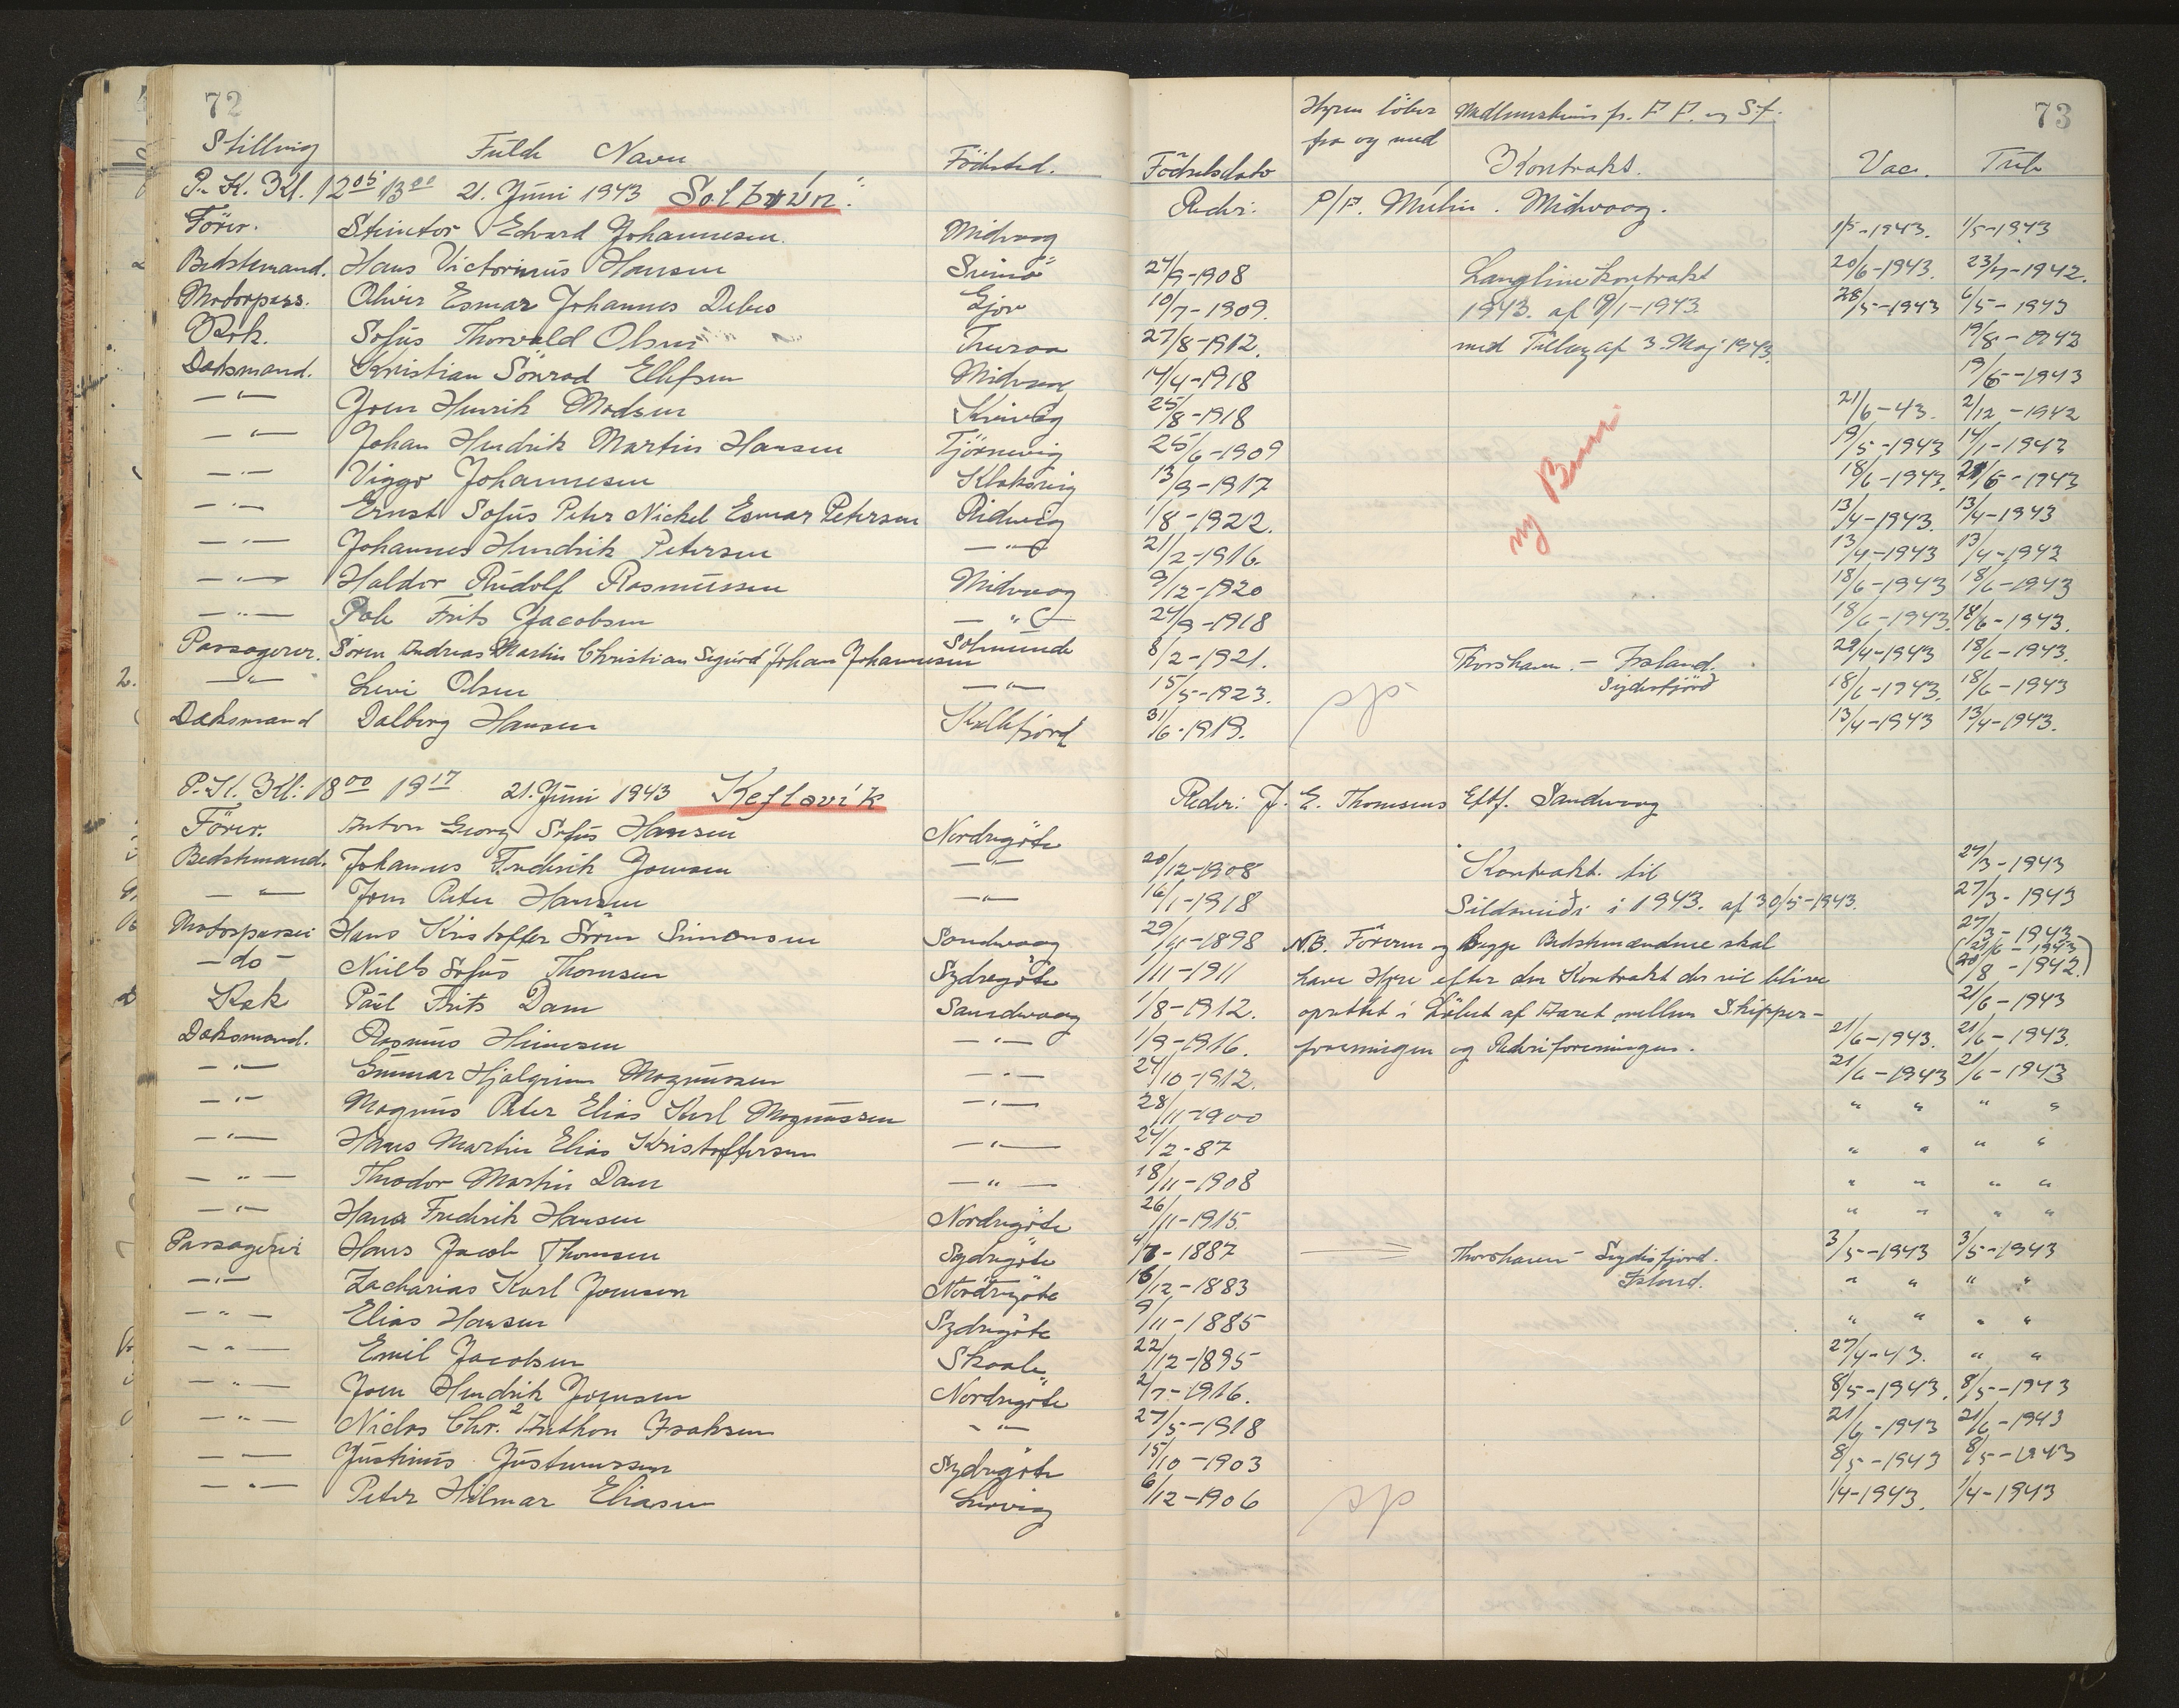 72
73
Stilling Fulde Navn Födested. Födselsdato Hyren löber fra og med Medlemskemis fr. F F. og S.f. Kontrakt. Vac. Tub.
P. K. Kl. 12 05 13 00 21. Juni 1943 Solbrún. Rederi: P/F. Mulin. Midvaag.
Förer. Steintor Edvard Johannesen. Midvaag 1/5-1943. 1/5-1943
Bedstemand. Hans Victorinus Hansen Sumö 24/9-1908 Langlinekontrakt 20/6-1943. 23/7-1942.
Motorpass. Oliver Esmar Johannes Debes Gjov 10/7-1909. 1943. af 9/1-1943. 28/5-1943 6/5-1943
Kok. Sofus Thorvald Olsen 27/8-1912. med Tillæg af 3. Maj 1943. 19/8-1942
Dæksmand. Kristian Sönrod Ellefsen Midvaag 14/4-1918 19/6-1943
—"— Joen Henrik Madsen Kvivig 25/8-1918 21/6-43. 2/12-1942
—"— Johan Hendrik Martin Hansen Tjörnevig 25/6-1909 19/5-1943 14/1-1943
—"— Viggo Johannesen Klaksvig 13/9-1917 ny 18/6-1943. 21/6-1943
—"— Ernst Sofus Peter Nickel Esmar Petersen Ridevig 1/8-1922. 13/4-1943. 13/4-1943
—"— Johannes Hendrik Petersen —"— 21/2-1916. 13/4-1943 13/4-1943
—"— Haldor Rudolf Rasmussen Midvaag 9/12-1920 18/6-1943 18/6-1943
—"— Pole Frits Jacobsen —"— 24/9-1918 18/6-1943. 18/6-1943.
Passagerer. Sören Andreas Martin Christian Sigurd Johan Johannesen Solmunde 8/2-1921. Thorshavn. - Island. 29/4-1943 18/6-1943.
—"— Levi Olsen —"— 15/5-1923. Sydisfjörd 18/6-1943. 18/6-1943
Dæksmand Dalberg Hansen Kollefjord 31/6-1919. 13/4-1943 13/4-1943.
P. K. Kl: 18 00 19 17 21. Juni 1943 Keflavík Rederi: J. E. Thomsens Eftf. Sandvaag
Förer. Anton Georg Sofus Hansen Nordregöte
Bedstemand. Johannes Fredrik Joensen —"— 20/12-1908 Kontrakt til 27/3-1943
—"— Joen Peter Hansen —"— 16/1-1918 Sildsmidi i 1943. af 30/5-1943. 27/3-1943
Motorpasser Hans Kristoffer Sören Simonsen Sandvaag 29/11-1898 N.B. Föreren og begge Bedstemændene skal 27/3-1943
- do - Niels Sofus Thomsen Sydregöte 1/11-1911 have Hyre efter den Kontrakt der vil blive (21/6-1943 20/8-1942.)
Kok Paul Frits Dam Sandvaag 1/8-1912. oprettet i Löbet af Aaret mellem Skipper- 21/6-1943
Dæksmand. Rasmus Heinesen —"— 1/9-1916. foreningen og Rederiforeningen. 21/6-1943. 21/6-1943.
—"— Gunnar Hjalgrim Magnussen —"— 24/10-1912. 21/6-1943 21/6-1943
—"— Magnus Peter Elias Karl Magnussen —"— 28/11-1900 " " " "
—"— Hans Martin Elias Kristoffersen —"— 24/2-87 " " " "
—"— Theodor Martin Dam —"— 18/11-1908 " " " "
—"— Hans Fredrik Hansen Nordregöte 26/11-1915. " " " "
Passagerer Hans Jacob Thomsen Sydregöte 4/7-1887 Thorshavn - Seydisfjord. 3/5-1943 3/5-1943
—"— Zacharias Karl Joensen Nordregöte 16/12-1883 Island. " " " "
—"— Elias Hansen Sydregöte 9/11-1885 " " " "
—"— Emil Jacobsen Skaale 22/12-1895 27/4-43. " "
—"— Joen Hendrik Joensen Nordregöte 2/7-1916. 8/5-1943. 8/5-1943
—"— Niclas Chr. Anthon Isaksen —"— 27/5-1918 21/6-1943 21/6-1943
—"— Justinus Justinussen Sydregöte 15/10-1903 8/5-1943 8/5-1943
—"— Peter Hilmar Eliasen Lervig 6/12-1906 1/4-1943. 1/4-1943